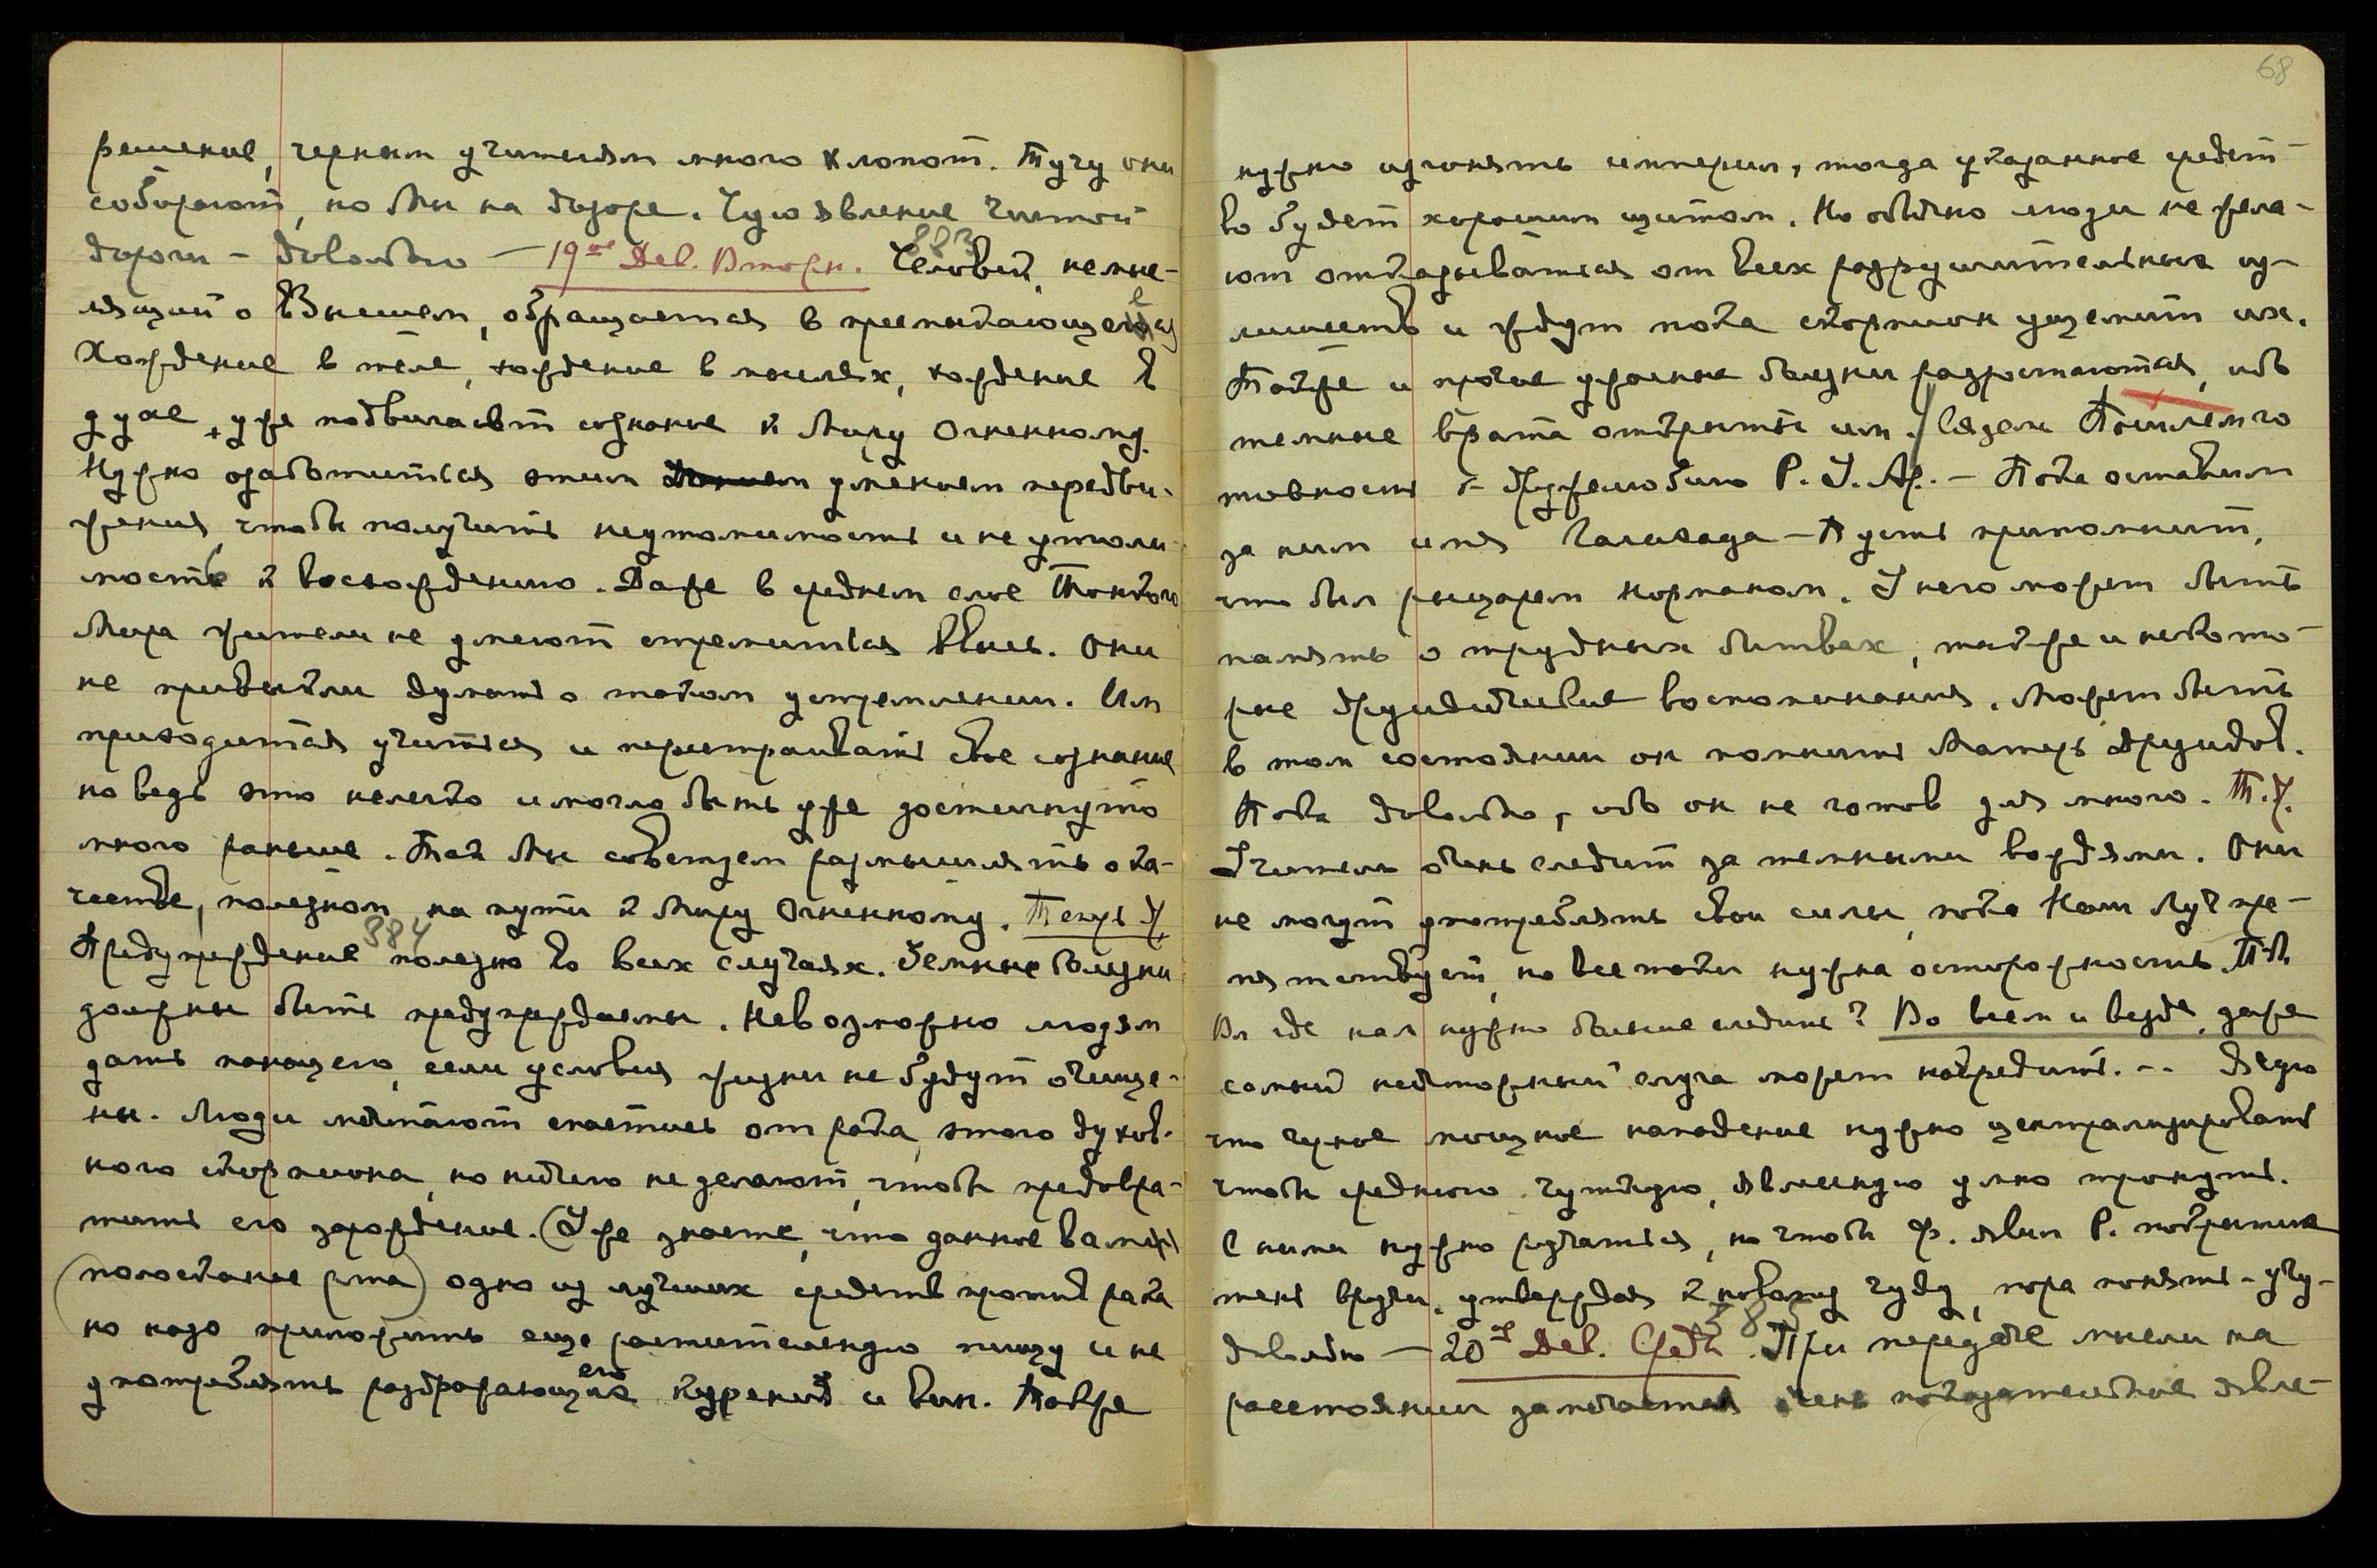 решение, черным учителям много хлопот. Тучу они
собирают, но Мы на дозоре. Чую явление чистой
дороги – довольно — 19ое Дек. Вторн. 883 Человек, не мыс-
лящий о Высшем, обращается в пресмыкающееся
Хождение в теле, хождение в мыслях, хождение в
духе, уже подвигает сознание к Миру Огненному.
Нужно озаботиться этим умением передви-
жения, чтобы получить неутомимость и неутоли-
мость к восхождению. Даже в среднем слое Тонкого
Мира жители не умеют стремиться ввысь. Они
не привыкли думать о таком устремлении. Им
приходится учиться и перестраивать свое сознание
но ведь это нелегко и могло быть уже достигнуто
много раньше. Так Мы советуем размышлять о ка-
честве, полезном на пути к Миру Огненному. Теперь У.
884
Предупреждение полезно во всех случаях. Земные болезни
должны быть предупреждаемы. Невозможно людям
дать панацею, если условия жизни не будут очище-
ны. Люди мечтают спастись от рака, этого духов-
ного скорпиона, но ничего не делают, чтобы предовра-
тить его зарождение. (Уже знаете, что данное вам
(полоскание рта) одно из лучших средств против рака
но надо приложить еще растительную пищу и не
употреблять раздражающих курений и вин. Также
68
нужно изгонять империл, тогда указанное средст-
во будет хорошим щитом. Но обычно люди не жела-
ют отказываться от всех разрушительных из-
лишеств и ждут пока скорпион ущемит их.
Также и прочие ужасные болезни разрастаются, ибо
темные врата открыты им.
товность к дружелюбию Р. У. Ар. – Пока оставим
за ним имя Галахада – Пусть припомнит,
что был рыцарем Норманом. У него может быть
память о трудных битвах, также и некото-
рые друидические воспоминания. Может быть
в том состоянии он помнит Матерь Друидов.
Пока довольно, ибо он не готов для много. Т.У.
Учитель очень следит за темными вождями. Они
не могут употреблять свои силы, пока Наш Луч пре-
пятствует, но все-таки нужна осторожность.
Вл. где нам нужно больше следить? Во всем и везде, даже
самый ничтожный слуга может навредить. –– Ведаю
что черное мощное нападение нужно централизировать
чтобы среднюю чуткую, явленную умно тронуть.
С ними нужно ручаться, но чтобы Ф. явил Р. покрытие
тени врагу, утверждая к новому чуду, пора понять – Чую –
довольно — 20ое Дек. Среда. 885 При передаче мысли на
расстоянии замечается очень показательное явле-